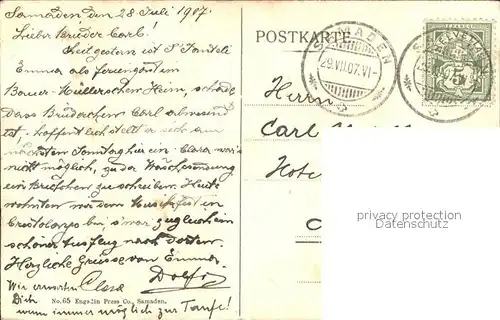 Samaden, den 28 Juli 1907.
Lieber Bruder Carl!
Seit gestern ist
Emma als Feriengast im
Bauer-Müllerschen Heim, schade
dass Brüderchen Carl abwesend
ist - hoffentlich stellt er sich am
nächsten Sonntag hier ein - Clara war's
nicht möglich, zu der Wäschesendung
ein Briefchen zu schreiben. Heute
wohnten wir dem Musikfest in
bei; s'war zugleich ein
schöner Ausflug nach dorten.
Herzliche Grüsse von Emma,
Wir erwarten Clara Dolfi
Dich
wenn immer möglich zur Taufe!
No. 65 Engadin Press Co., Samaden.
POSTKARTE
SAMADEN
29.VII.07.VI-
HELVETIA
5
Herrn
Carl
Hote
privacy protection
Datenschutz